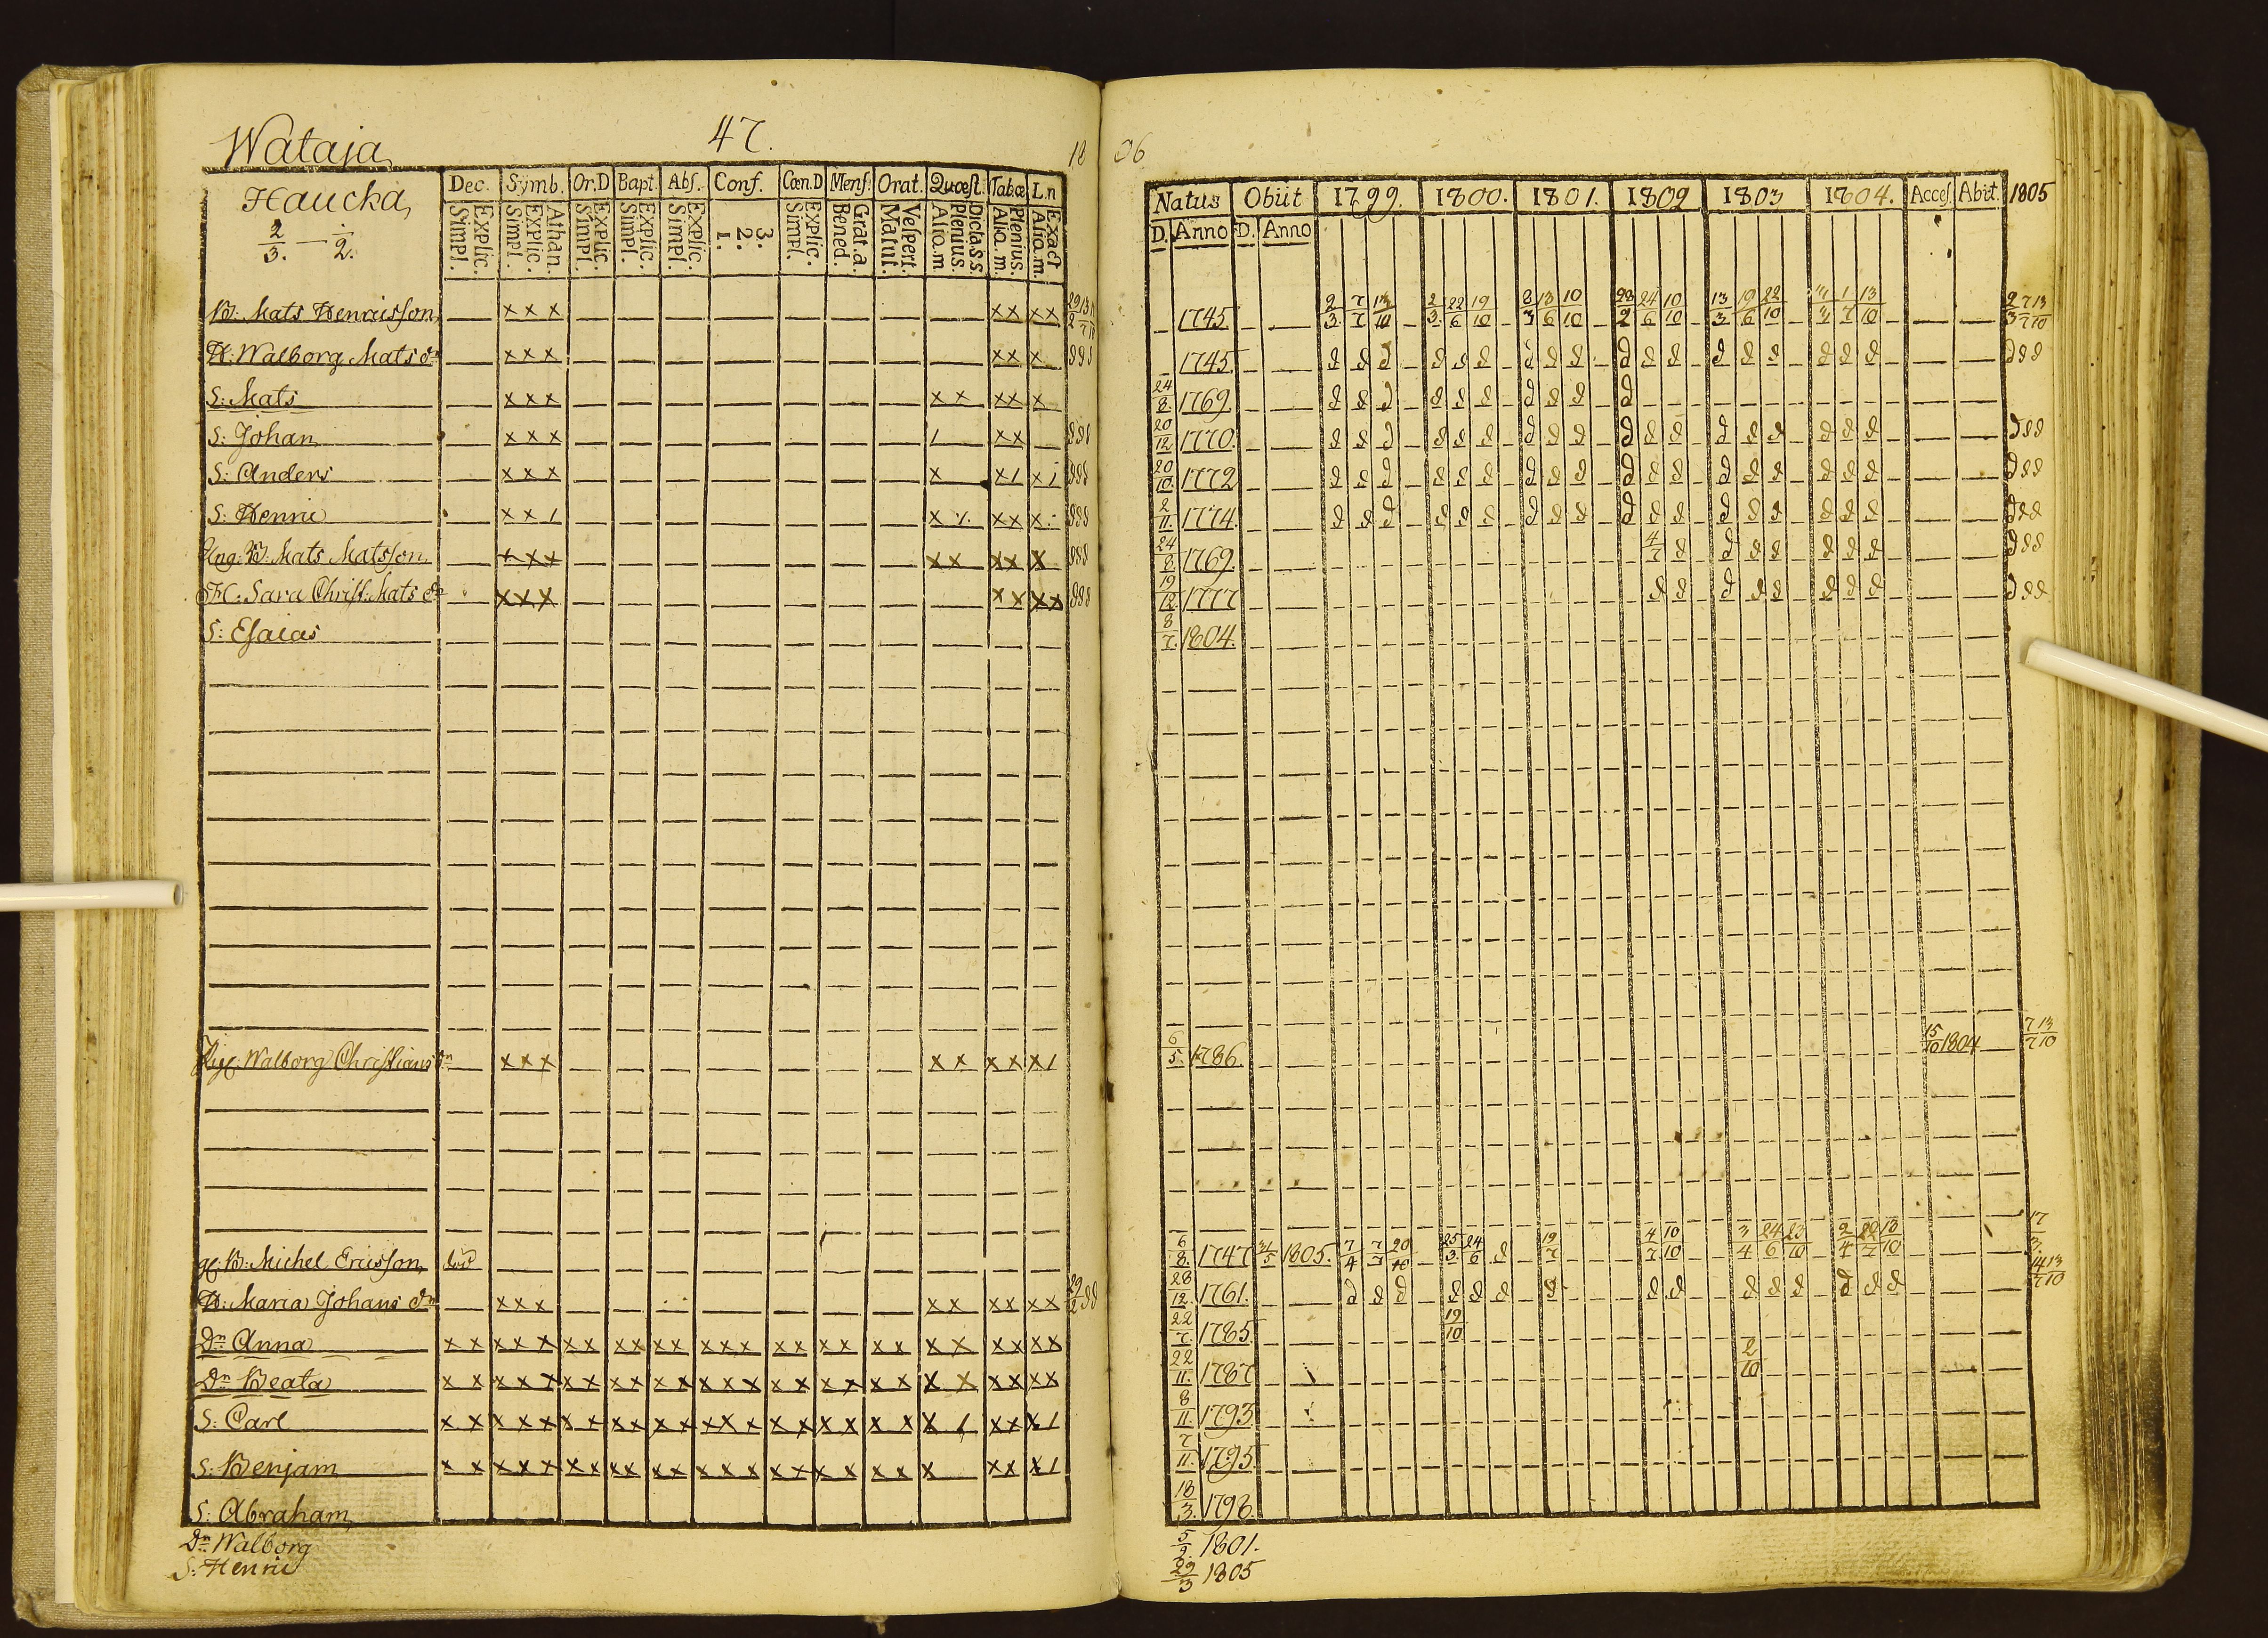 47.
Wataja
Haucka
2/3. — 1/2.
Dec. Symb. Or.D Bapt. Abs. Conf. Cœn.D Mens. Orat. Quæst. Tabæ L.n
Simpl. Explic. Simpl. Explic. Athan. Simpl. Explic. Simpl. Explic. Simpl. Explic. 1. 2. 3. Simpl. Explic. Bened. Grat.a. Matut. Vespert. Alio.m Plenius. Dicta.s.s Alia.m. Plenius. Alia.m. Exact
B: Mats Henricsson x x x x x x x
H: Walborg Mats dr x x x x x x
S: Mats x x x x x x x x
S: Johan x x x / x x
S: Anders x x x x x / x /
S: Henric x x / x /. x x x
Ung: B: Mats Matsson x x x x x x x x
H: Sara Christ: Mats dr x x x x x x x
S: Esaias
Walborg Christians dr x x x x x x x x /
B: Michel Ericsson
H: Maria Johans dr x x x x x x x x x
Dr Anna x x x x x x x x x x x x x x x x x x x x x x x x x x
Dr Beata x x x x x x x x x x x x x x x x x x x x x x x x x x
S: Carl x x x x x x x x x x x x x x x x x x x x x / x x x /
S: Benjam x x x x x x x x x x x x x x x x x x x x x x x x /
S: Abraham
Dr Walborg
S: Henric
18 06
Natus Obiit 1799. 1800. 1801. 1802 1803 1804. Acces. Abiit. 1805
D. Anno D. Anno
1745. 2/3. 7/7 13/10 2/3. 22/6 19/10 8/3 13/6 10/10 28/2 24/6 10/10 13/3 19/6 22/10 1/7 13/10 2/3 7/7 13/10
1745. d d d d d d d d d d d d d d d d d d d d d
24/8. 1769. d d d d d d d d d d
20/12 1770. d d d d d d d d d d d d d d d d d d d d d
20/10. 1772 d d d d d d d d d d d d d d d d d d d d d
2/11. 1774. d d d d d d d d d d d d d d d d d d d d d
24/8. 1769. 4/7 d d d d d d d d d d
19/12. 1777 d d d d d d d d d d d
8/7. 1804.
6/5. 1786. 15/10 1804 7/7 13/10
6/8. 1747 31/5 1805. 7/4 7/7 20/10 25/3. 24/6 d 19/7 4/7 10/10 3/4 24/6 23/10 2/4 22/7 13/10 17/3.
28/12. 1761. d d d d d d d d d d d d d d d 14/7 13/10
22/7 1785. 19/10
22/11. 1787 2/10
8/11. 1793
7/11. 1795
18/3. 1798.
5/9. 1801.
29/3 1805